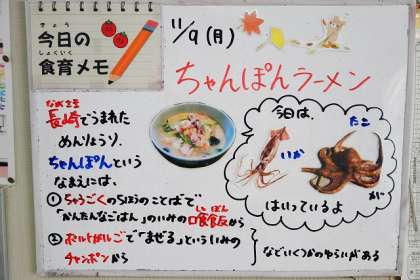 きょう
今日の
しょくいく
食育メモ
11/9(月)
ちゃんぽんラーメン
ながさき
長崎でうまれた
めんりょうり。
ちゃんぽんという
なまえには、
①ちゅうごくのちほうのことばで
「かんたんなごはん」のいみの喰飯から
②ポルトガルごで「まぜる」といういみの
チャンポンから
などいくつかのゆらいがある
今日は、
いか
たこ
が
はいっているよ